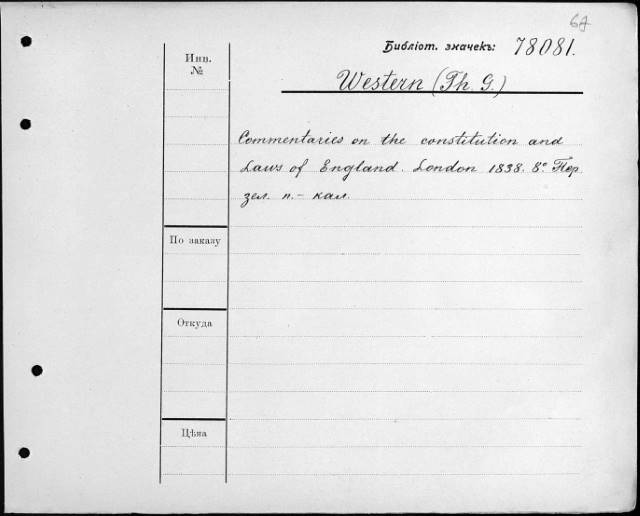 67
Библіот. значекъ: 78081.
Инв.
№
Western (Th. G.)
Commentaries on the constitution and
Laws of England. London 1838. 8º Пер.
зел. п. – кал.
По заказу
Откуда
Цѣна